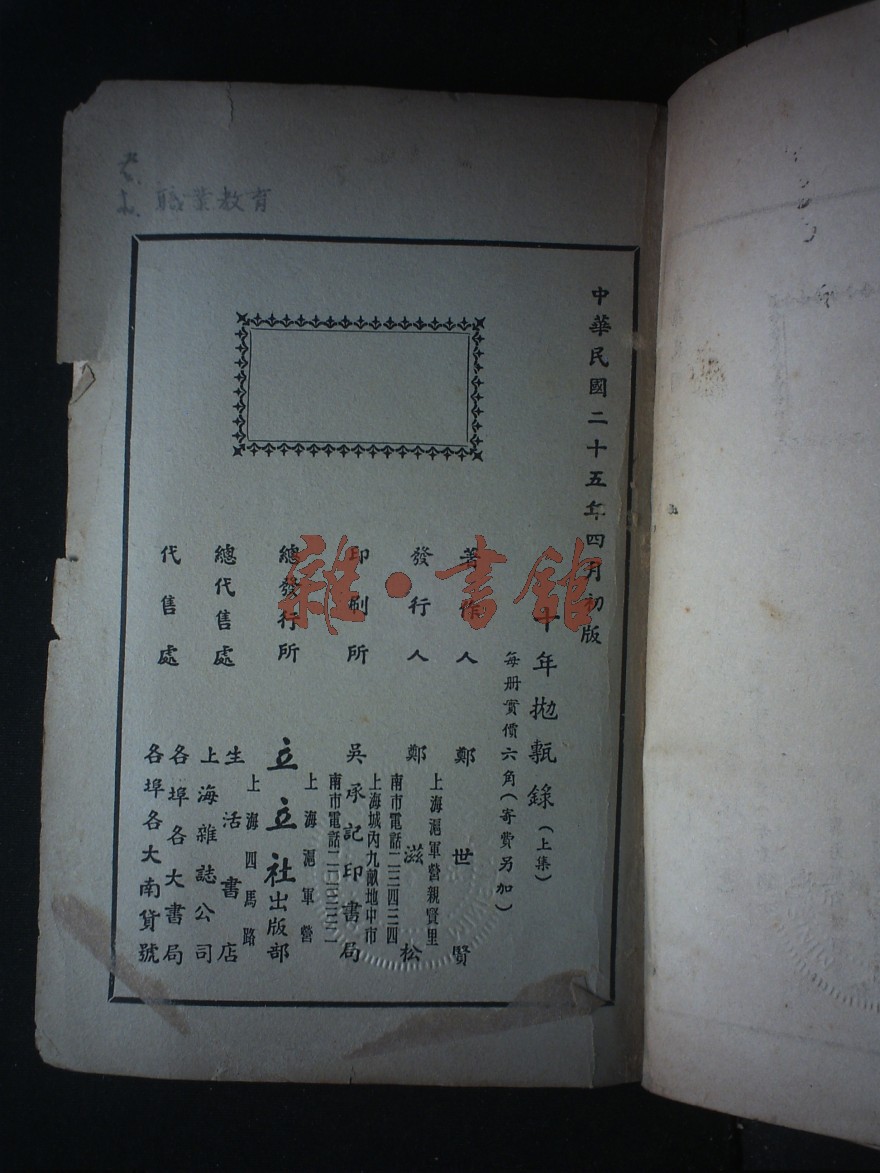 職業教育
中華民國二十五年四月初版
十年拋甎錄(上集)
每册實價六角(寄費另加)
著作人 鄭世賢
上海滬軍營親賢里
發行人 鄭滋松
南市電話二三四三四
上海城內九畝地中市
印刷所 吳承記印書局
上海滬軍營
總發行所 立立社出版部
上海四馬路
總代售處 生活書店
上海雜誌公司
代售處 各埠各大書局
各埠各大南貨號
雜·書館